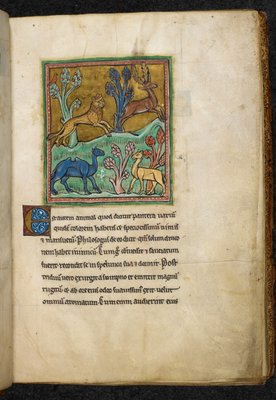 Est autem animal quod dicitur pantera varium
quidem colorem habens et speciosissimum nimis
et mansuetum. Phisiologus de eo dicit quod solum draco
nem habet inimicum. Cum ergo comederit et saciatum
fuerit recondit se in spelunca sua et dormit. Post
triduum vero exurgit a sompno et emittit magnum
rugitum et ab ore eius odor suavissimus exit velut
omnium aromatum. Cum enim audierint eius